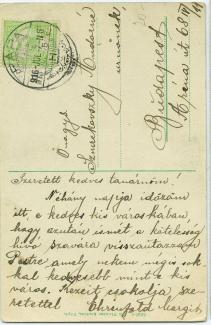 Őnagys.
Szmrekovszky Andorné
úrnőnek
Budapest
Aréna út 68
Szeretett kedves tanárnőm!
Néhány napja időzöm
itt a kedves kis városkában,
hogy azután ismét a kötelesség
hívó szavára visszautazzam
Pestre, amely nekem mégis sok
kal kedvesebb mint a kis
város. Kezeit csókolja sze
retettel Ehrenfeld Margit